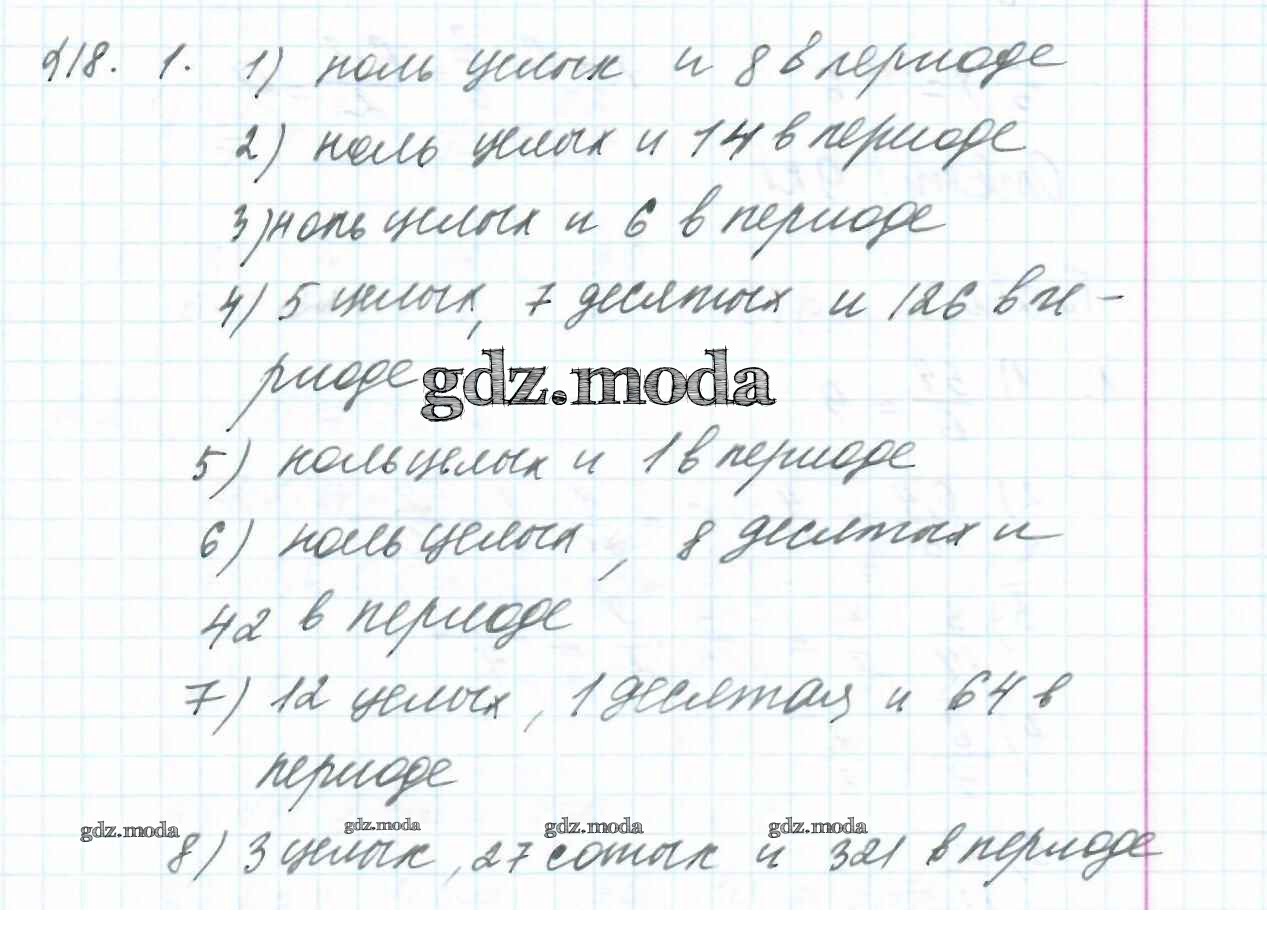 §18. 1. 1) ноль целых и 8 в периоде
2) ноль целых и 14 в периоде
3) ноль целых и 6 в периоде
4) 5 целых, 7 десятых и 126 в пе-
риоде
gdz.moda
5) ноль целых и 1 в периоде
6) ноль целых, 8 десятых и
42 в периоде
7) 12 целых, 1 десятая и 64 в
периоде
gdz.moda gdz.moda gdz.moda gdz.moda
8) 3 целых, 27 сотых и 321 в периоде